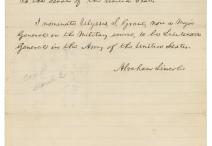 To the Senate of the United States.
I nominate Ulysses S. Grant, now a Major
General in the Military service, to be Lieutenant
General in the Army of the United States.
Abraham Lincoln